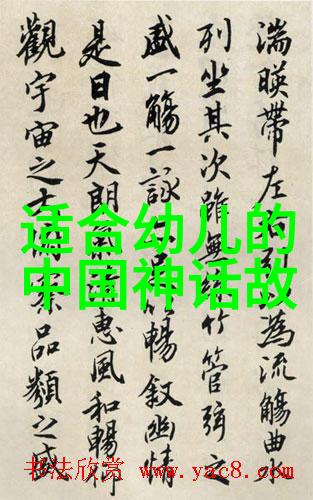 湍暎帶左右為流觴曲
列坐其次雖無竹管弦之
盛一觴一詠暢叙幽情
是日也天朗氣清惠風和暢仰
觀宇宙之大品類之盛
适合幼儿的
中国神话故
书法欣赏 www.yac8.com